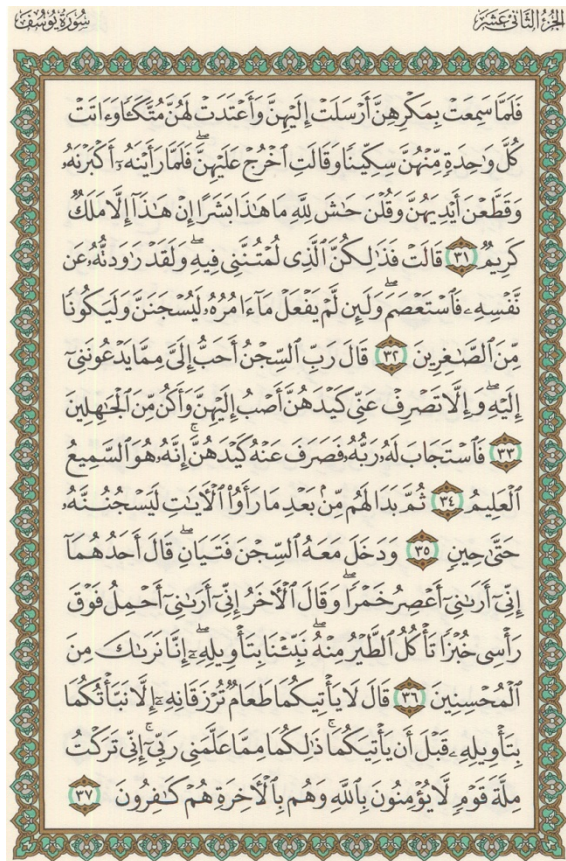 الجزء الثاني عشر
سورة يوسف
فَلَمَّا سَمِعَتْ بِمَكْرِهِنَّ أَرْسَلَتْ إِلَيْهِنَّ وَأَعْتَدَتْ لَهُنَّ مُتَّكَـًٔا وَءَاتَتْ
كُلَّ وَٰحِدَةٍ مِّنْهُنَّ سِكِّينًا وَقَالَتِ ٱخْرُجْ عَلَيْهِنَّۖ فَلَمَّا رَأَيْنَهُۥٓ أَكْبَرْنَهُۥ
وَقَطَّعْنَ أَيْدِيَهُنَّ وَقُلْنَ حَٰشَ لِلَّهِ مَا هَٰذَا بَشَرًا إِنْ هَٰذَآ إِلَّا مَلَكٌ
كَرِيمٌ ٣١ قَالَتْ فَذَٰلِكُنَّ ٱلَّذِى لُمْتُنَّنِى فِيهِۖ وَلَقَدْ رَٰوَدتُّهُۥ عَن
نَّفْسِهِۦ فَٱسْتَعْصَمَۖ وَلَئِن لَّمْ يَفْعَلْ مَآ ءَامُرُهُۥ لَيُسْجَنَنَّ وَلَيَكُونًا
مِّنَ ٱلصَّٰغِرِينَ ٣٢ قَالَ رَبِّ ٱلسِّجْنُ أَحَبُّ إِلَىَّ مِمَّا يَدْعُونَنِىٓ
إِلَيْهِۖ وَإِلَّا تَصْرِفْ عَنِّى كَيْدَهُنَّ أَصْبُ إِلَيْهِنَّ وَأَكُن مِّنَ ٱلْجَٰهِلِينَ
٣٣ فَٱسْتَجَابَ لَهُۥ رَبُّهُۥ فَصَرَفَ عَنْهُ كَيْدَهُنَّۚ إِنَّهُۥ هُوَ ٱلسَّمِيعُ
ٱلْعَلِيمُ ٣٤ ثُمَّ بَدَا لَهُم مِّنۢ بَعْدِ مَا رَأَوُا۟ ٱلْـَٔايَٰتِ لَيَسْجُنُنَّهُۥ
حَتَّىٰ حِينٍ ٣٥ وَدَخَلَ مَعَهُ ٱلسِّجْنَ فَتَيَانِۖ قَالَ أَحَدُهُمَآ
إِنِّىٓ أَرَىٰنِىٓ أَعْصِرُ خَمْرًاۖ وَقَالَ ٱلْـَٔاخَرُ إِنِّىٓ أَرَىٰنِىٓ أَحْمِلُ فَوْقَ
رَأْسِى خُبْزًا تَأْكُلُ ٱلطَّيْرُ مِنْهُۖ نَبِّئْنَا بِتَأْوِيلِهِۦٓۖ إِنَّا نَرَىٰكَ مِنَ
ٱلْمُحْسِنِينَ ٣٦ قَالَ لَا يَأْتِيكُمَا طَعَامٌ تُرْزَقَانِهِۦٓ إِلَّا نَبَّأْتُكُمَا
بِتَأْوِيلِهِۦ قَبْلَ أَن يَأْتِيَكُمَاۚ ذَٰلِكُمَا مِمَّا عَلَّمَنِى رَبِّىٓۚ إِنِّى تَرَكْتُ
مِلَّةَ قَوْمٍ لَّا يُؤْمِنُونَ بِٱللَّهِ وَهُم بِٱلْـَٔاخِرَةِ هُمْ كَٰفِرُونَ ٣٧